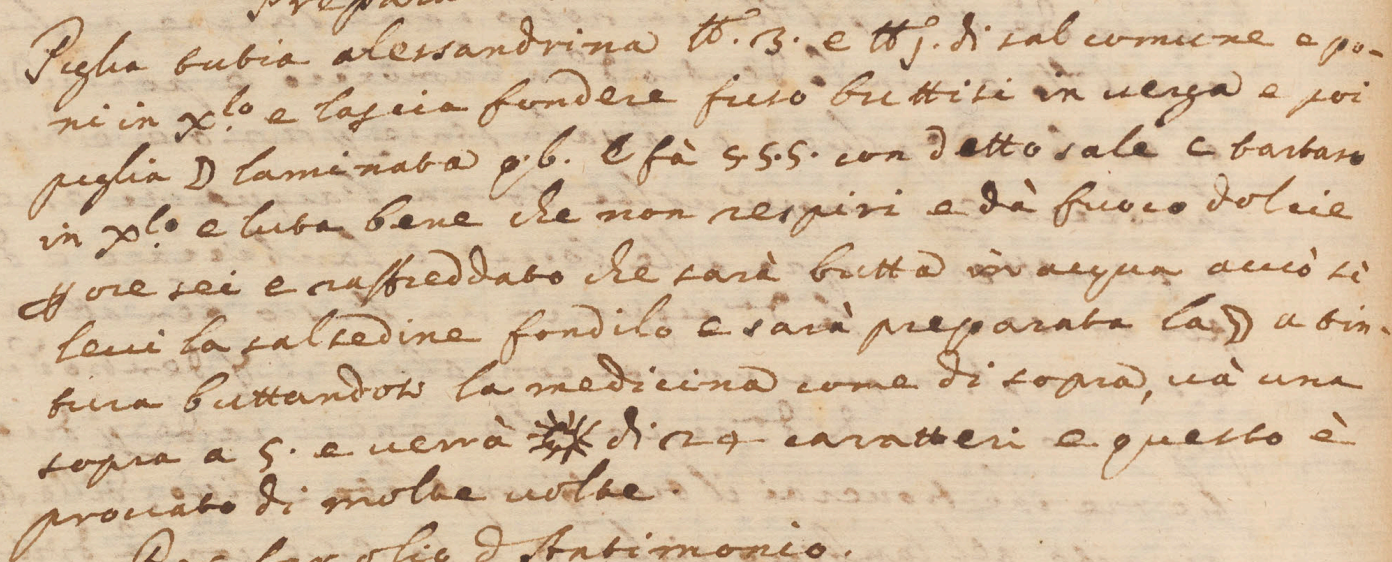 Prepara
Piglia tutia alessandrina ℔. 3. e ℔j. di sal comune e po-
ni in x.lo e lascia fondere fuso buttisi in verga e poi
piglia ☽ laminata q.b. e fà s.s.s. con detto sale e tartaro
in x.lo e luta bene che non respiri e dà fuoco dolcie
ore sei e raffreddato che sarà butta in acqua acciò si
levi la salsedine fondilo e sarà preparata la ☽ a tin-
tura buttandovi la medicina come di sopra, và una
sopra a 5. e verrà ☀ di 24 caratteri e questo è
provato di molte volte.
olio d'Antimonio.